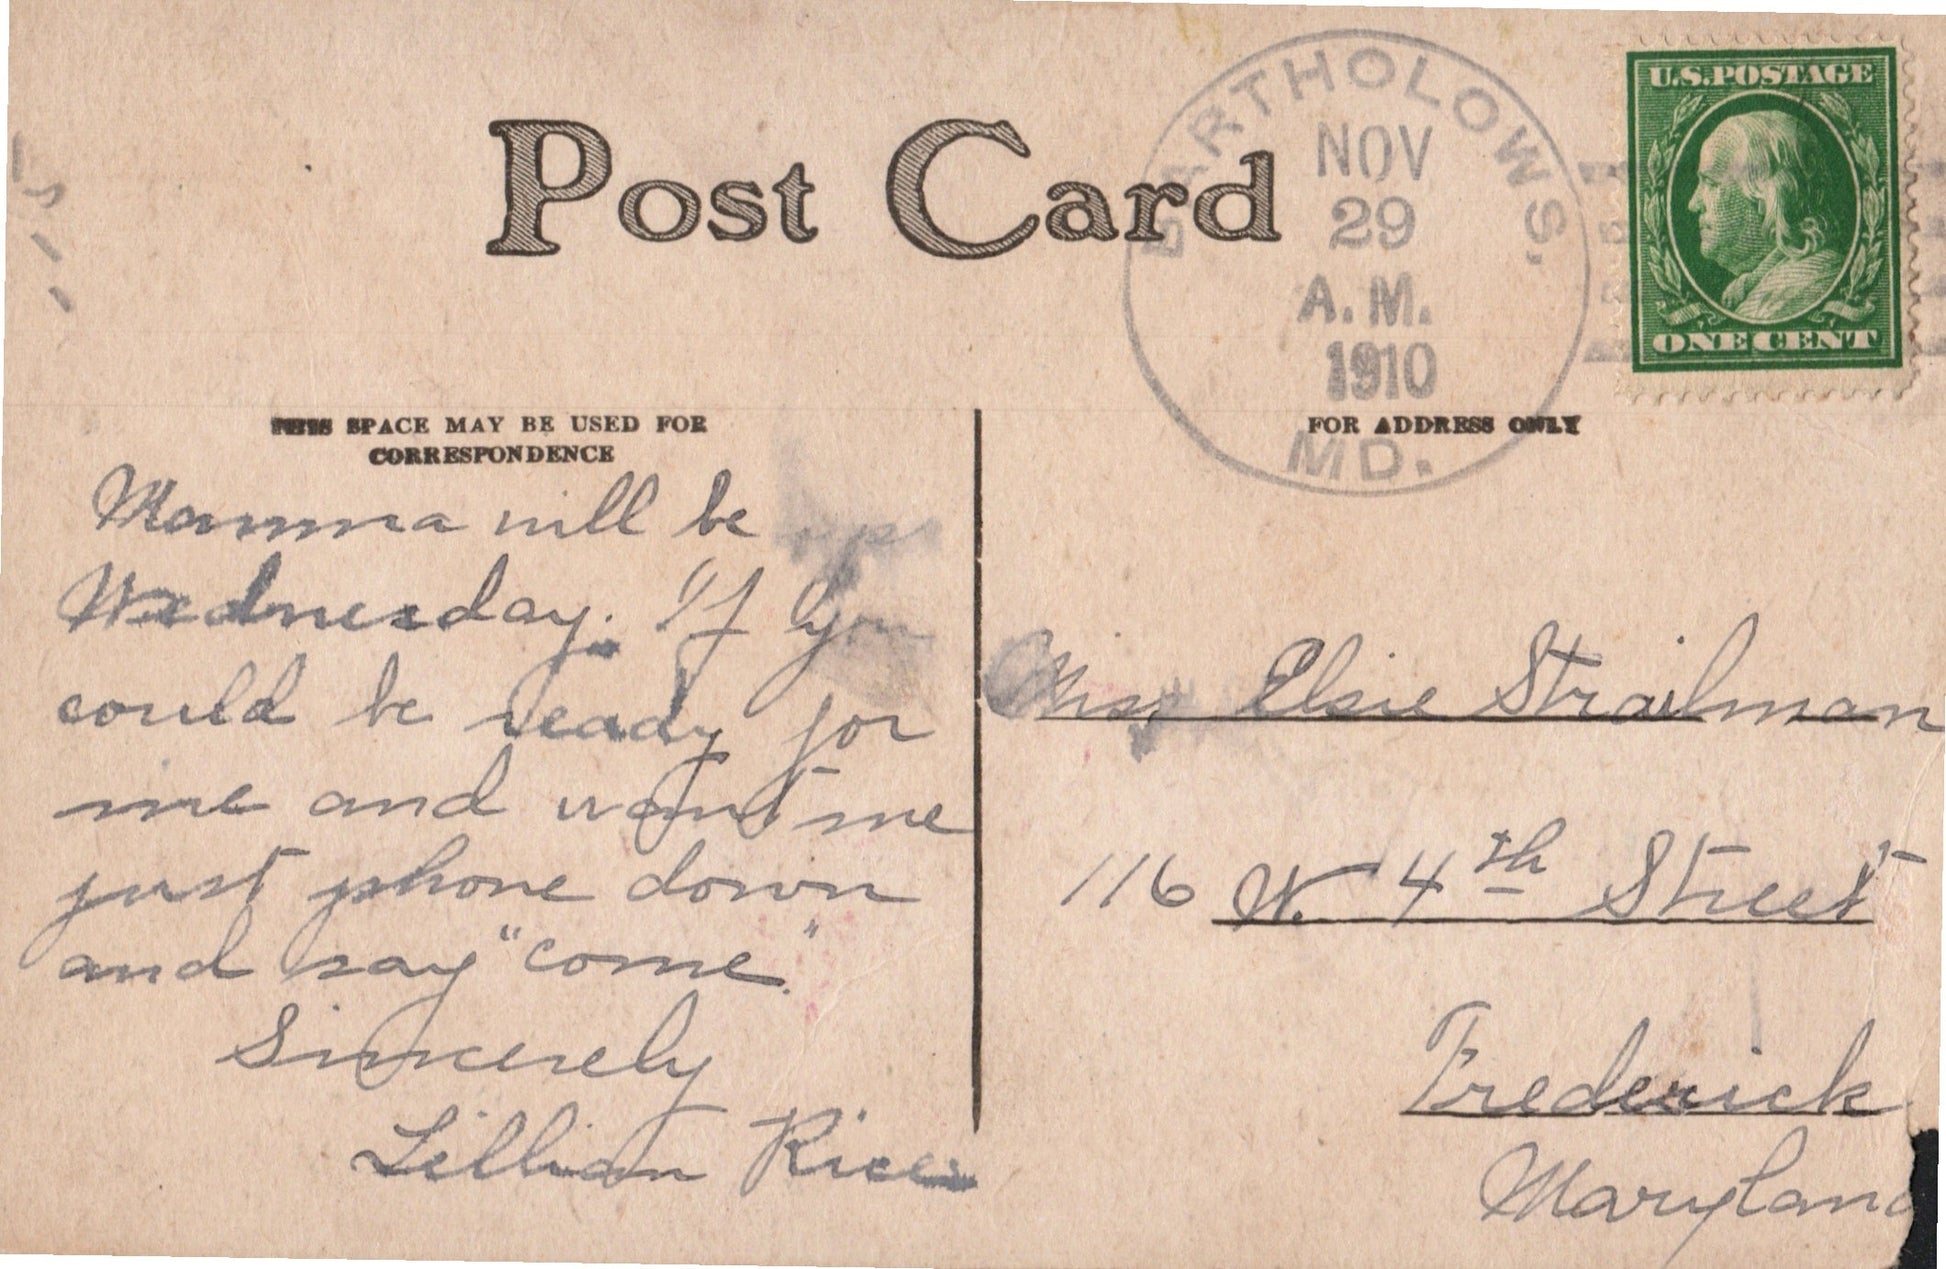 Post Card
BARTHOLOWS,
NOV
29
A.M.
1910
MD.
U.S.POSTAGE
ONE CENT
THIS SPACE MAY BE USED FOR
CORRESPONDENCE
FOR ADDRESS ONLY
Mamma will be
Wednesday. If you
could be ready for
me and want me
just phone down
and say "come."
Sincerely
Lillian Rice
Miss Elsie Strailman
116 W. 4th Street
Frederick
Maryland